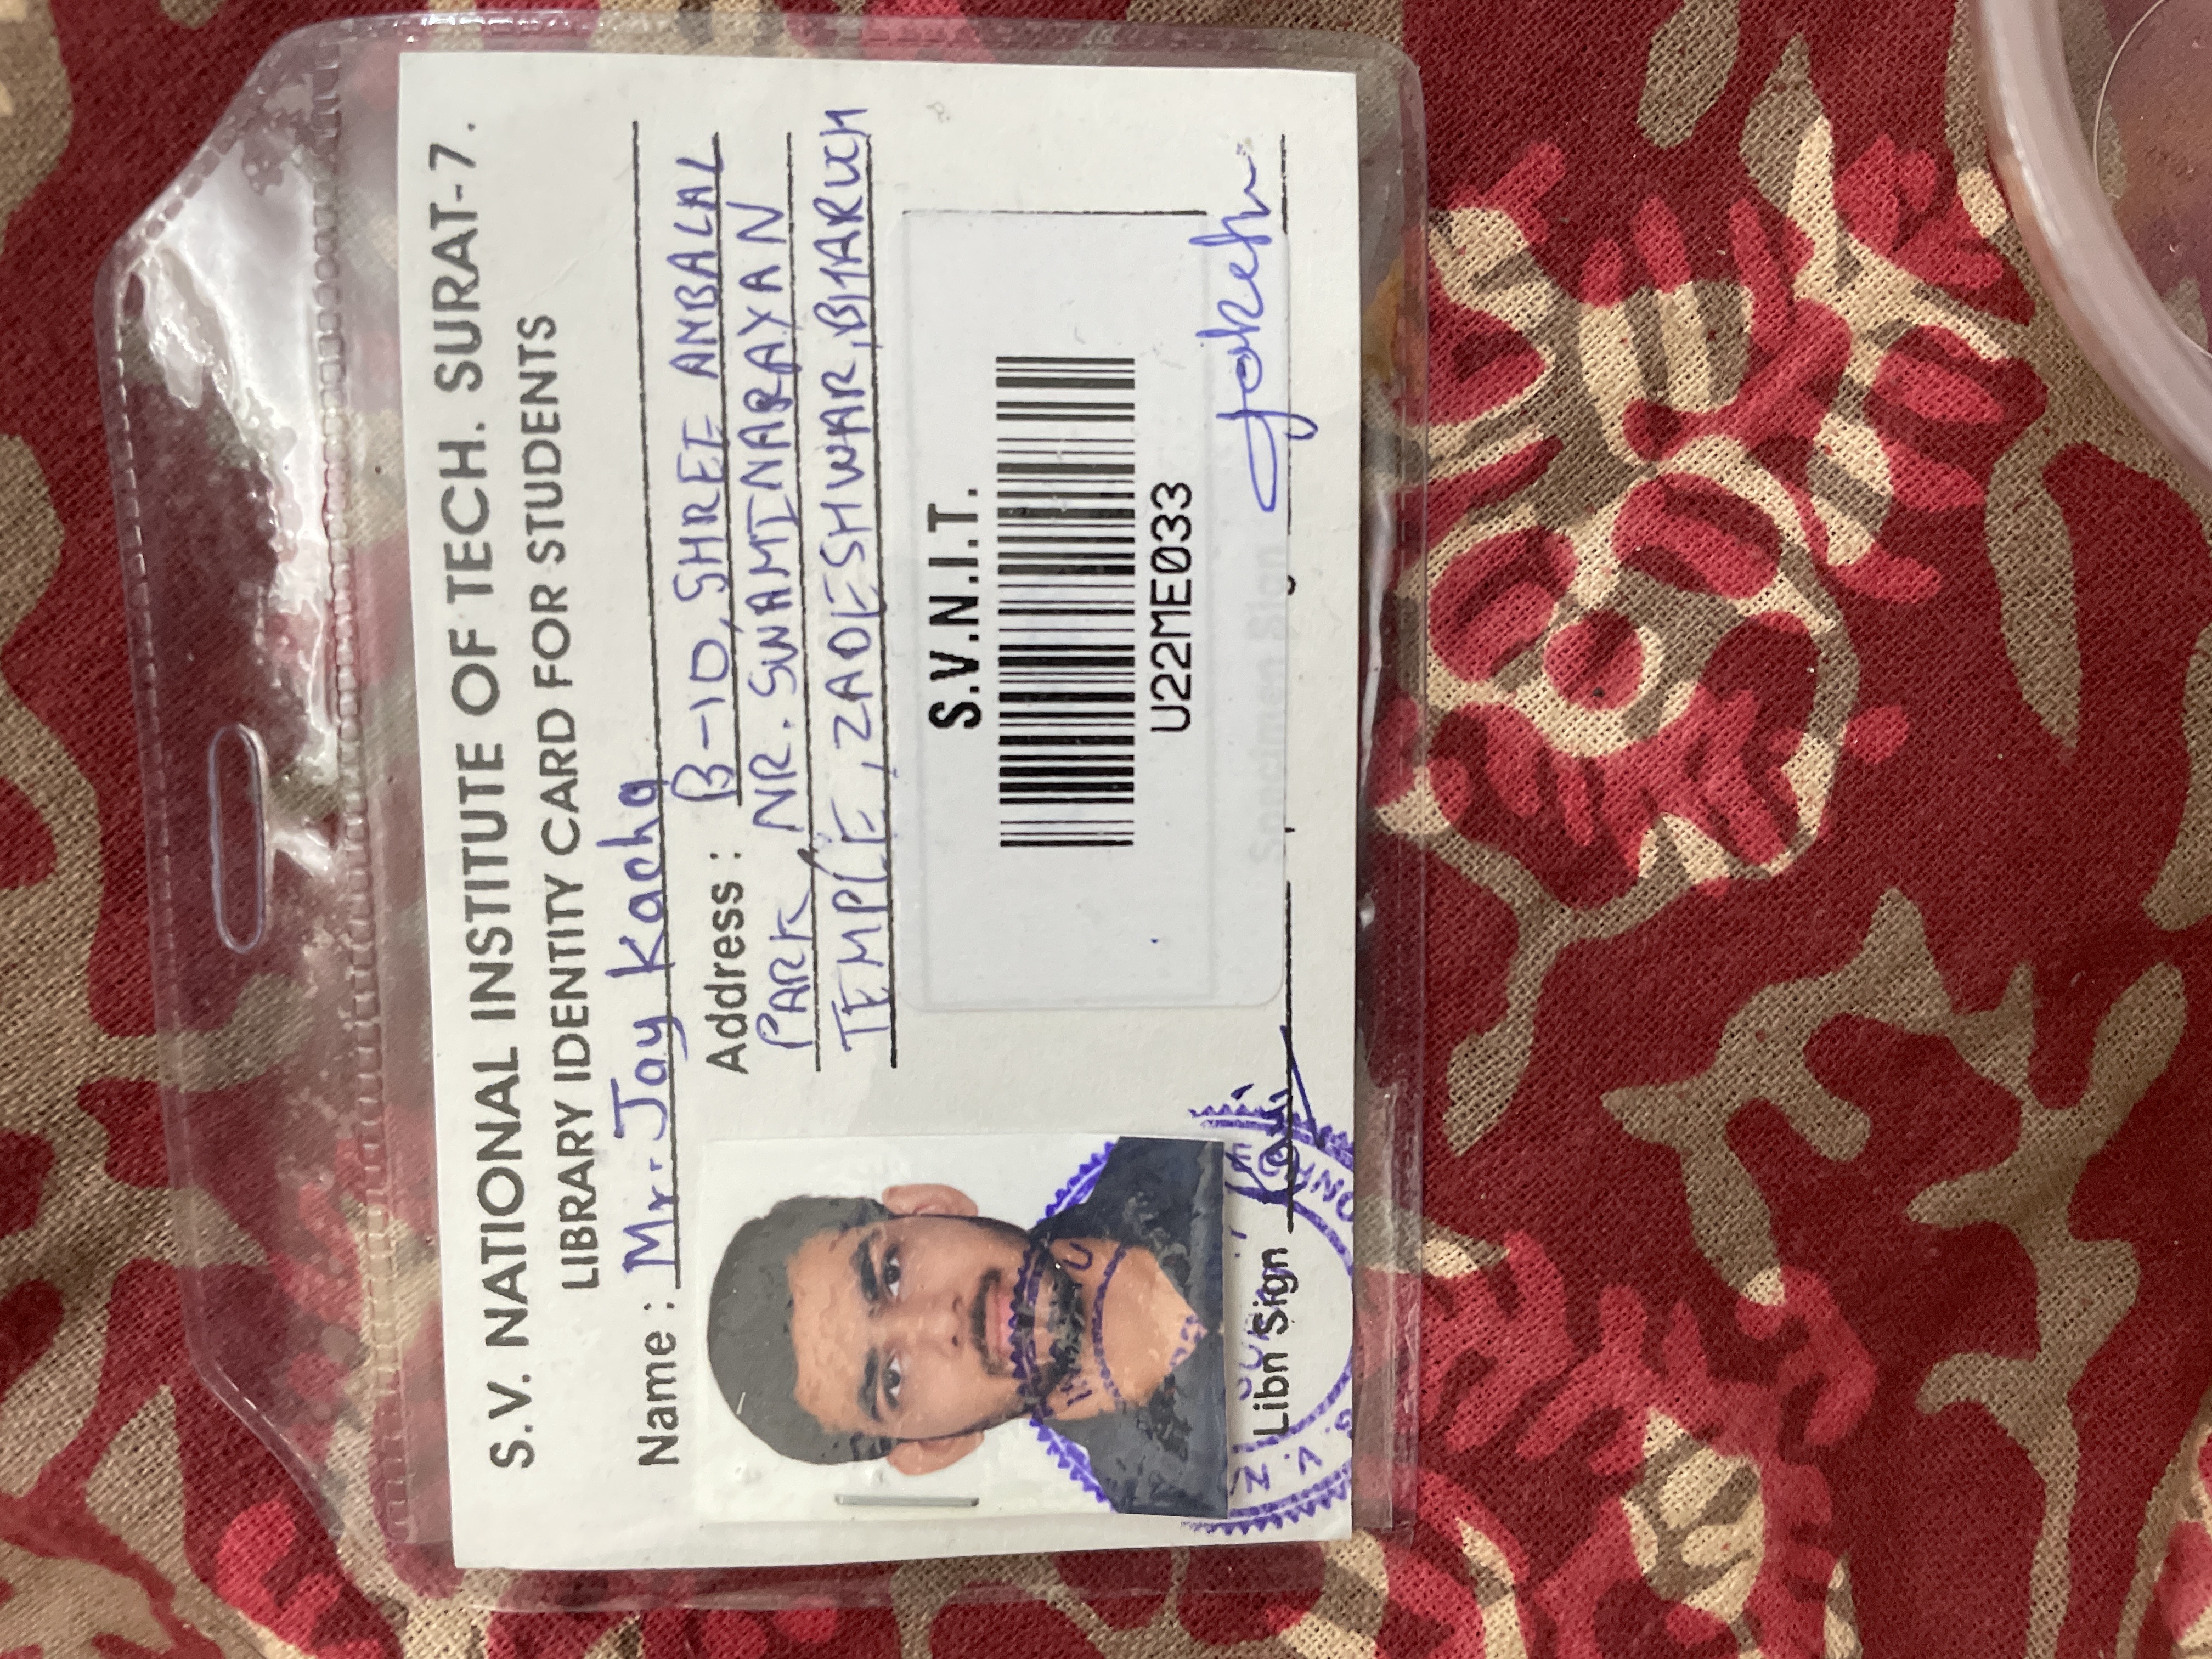 S.V. NATIONAL INSTITUTE OF TECH. SURAT-7.
LIBRARY IDENTITY CARD FOR STUDENTS
Name : Mr. Jay Kacha
Address : B-10, SHREE AMBALAL
PARK, NR. SWAMINARAYAN
TEMPLE, ZADESHWAR, BHARUCH
S.V.N.I.T.
U22ME033
Libn Sign
Specimen Sign